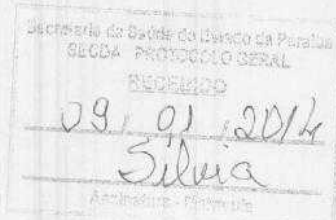 Secretaria da Saúde do Estado da Paraíba
PROTOCOLO GERAL
RECEBIDO
09, 01, 2014
Silvia
Assinatura -